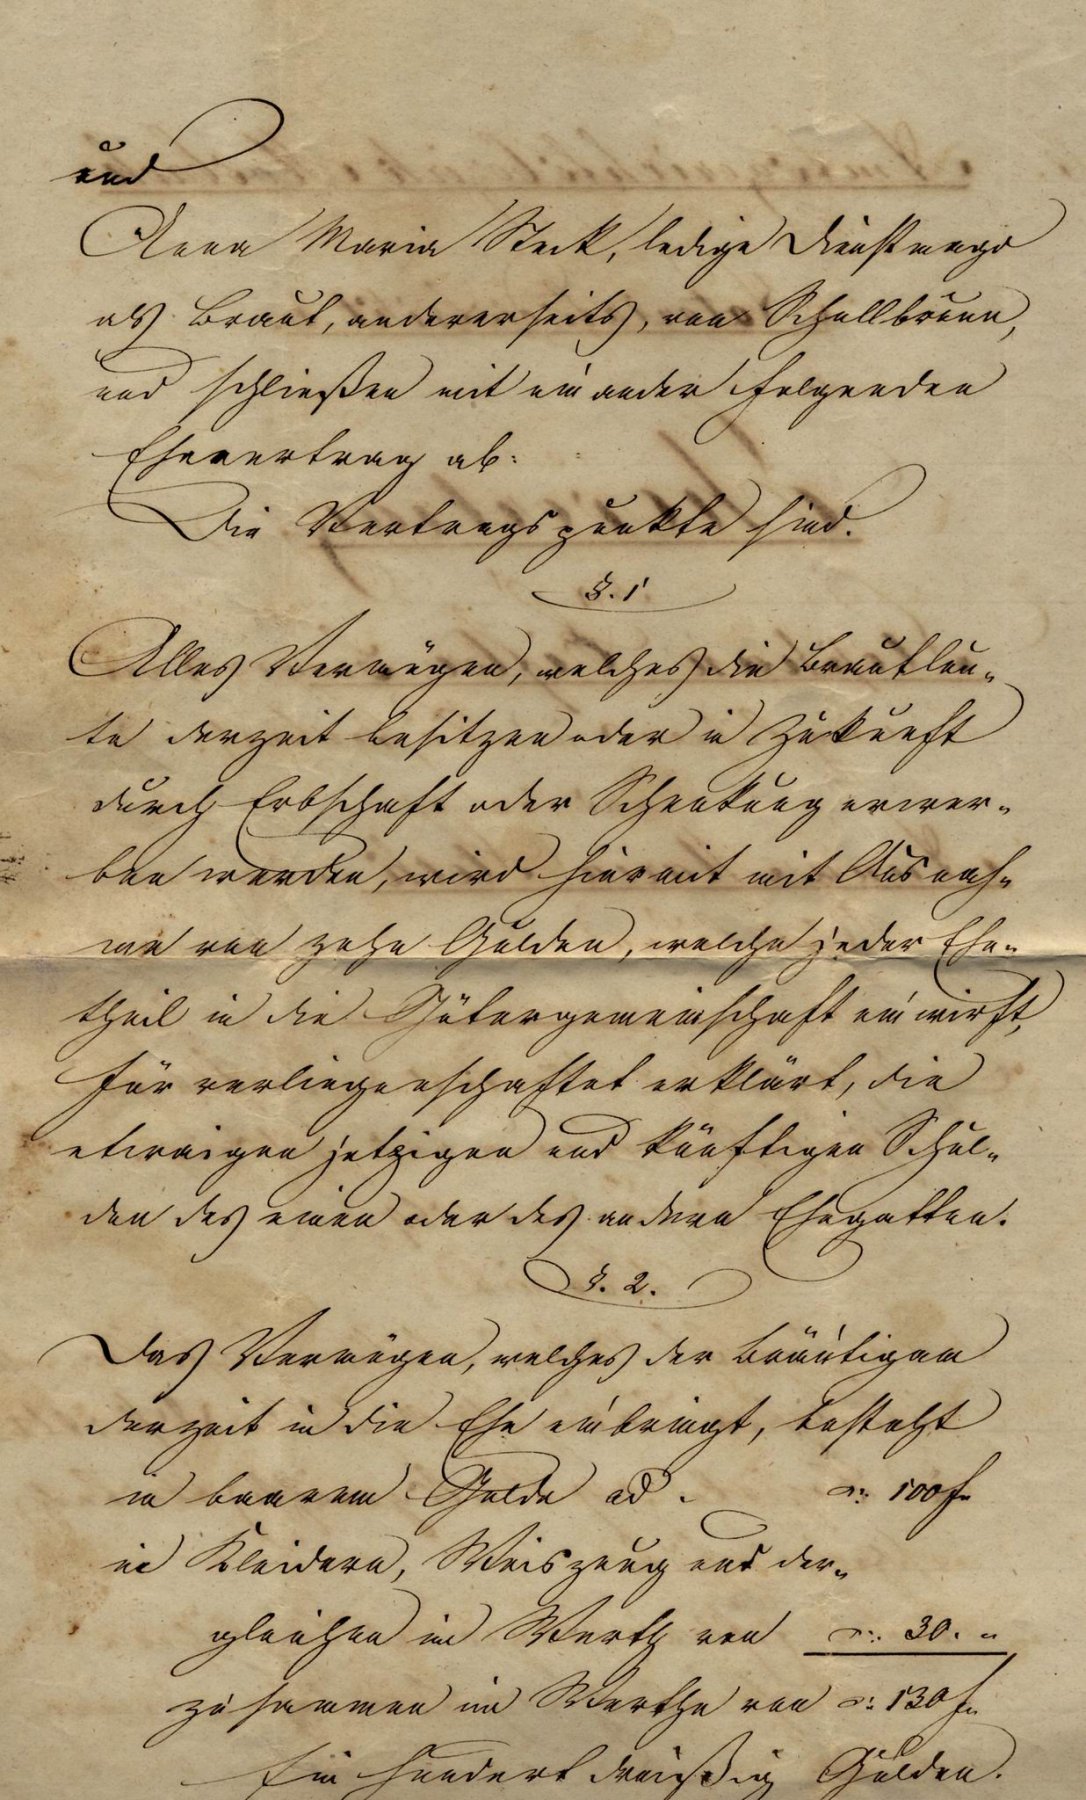 und
Anna Maria Steck, ledige Dienstmagd
als Braut, andererseits, von Schellbronn,
und schließen mit einander folgenden
Ehevertrag ab:
Die Vertragspunkte sind.
§. 1
Alles Vermögen, welches die Brautleu-
te derzeit besitzen oder in Zukunft
durch Erbschaft oder Schenkung erwer-
ben werden, wird hiermit mit Ausnah-
me von zehn Gulden, welche jeder Ehe-
theil in die Gütergemeinschaft einwirft,
für verliegenschaftet erklärt, die
etwaigen jetzigen und künftigen Schul-
den des einen oder des andern Ehegatten.
§. 2.
Das Vermögen, welches der Bräutigam
derzeit in die Ehe einbringt, besteht
in baarem Gelde ad. 100 f
in Kleidern, Weiszeug und der-
gleichen im Werth von 30. "
zusammen im Werthe von 130 f
Ein hundert dreißig Gulden.